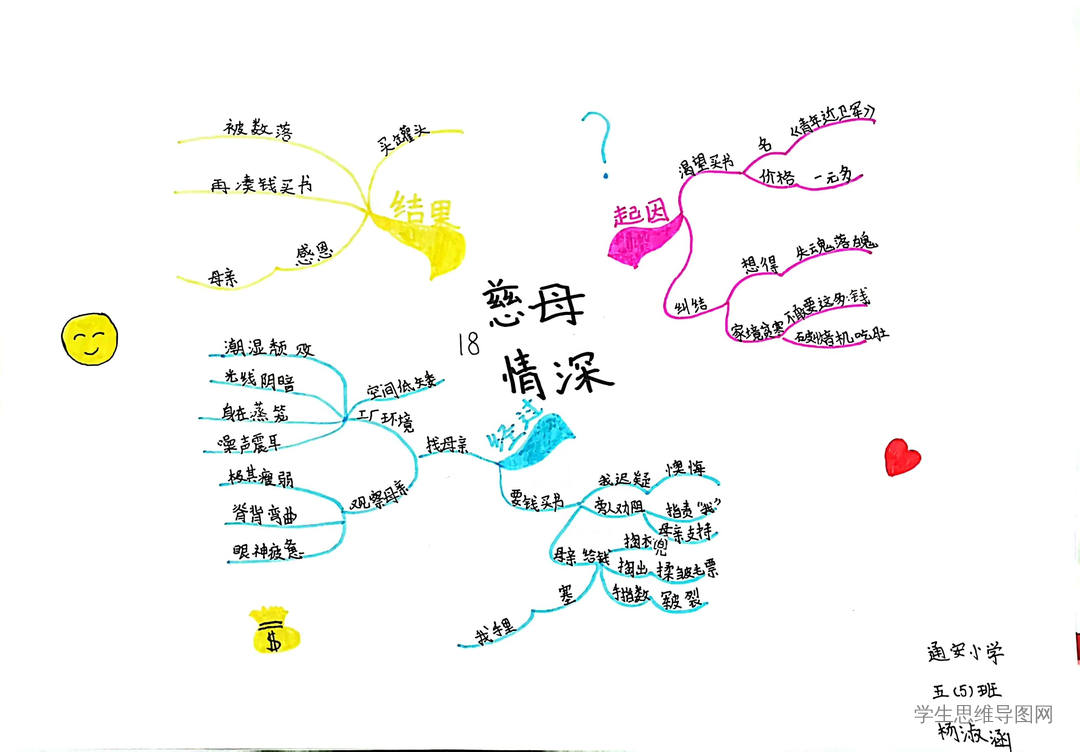 18
慈母
情深
起因
渴望买书
名
《青年近卫军》
价格
一元多
纠结
想得
失魂落魄
家境贫寒
不敢要这多钱
破烧机吃肚
经过
找母亲
工厂环境
空间低矮
潮湿颓败
光线阴暗
身在蒸笼
噪声震耳
观察母亲
极其瘦弱
脊背弯曲
眼神疲惫
要钱买书
我迟疑
懊悔
旁人劝阻
指责"我"
母亲支持
母亲给钱
掏衣兜
掏出
揉皱毛票
手指数
皲裂
塞
我手里
结果
买罐头
被数落
再凑钱买书
感恩
母亲
通安小学
五(5)班
学生思维导图网
杨淑涵